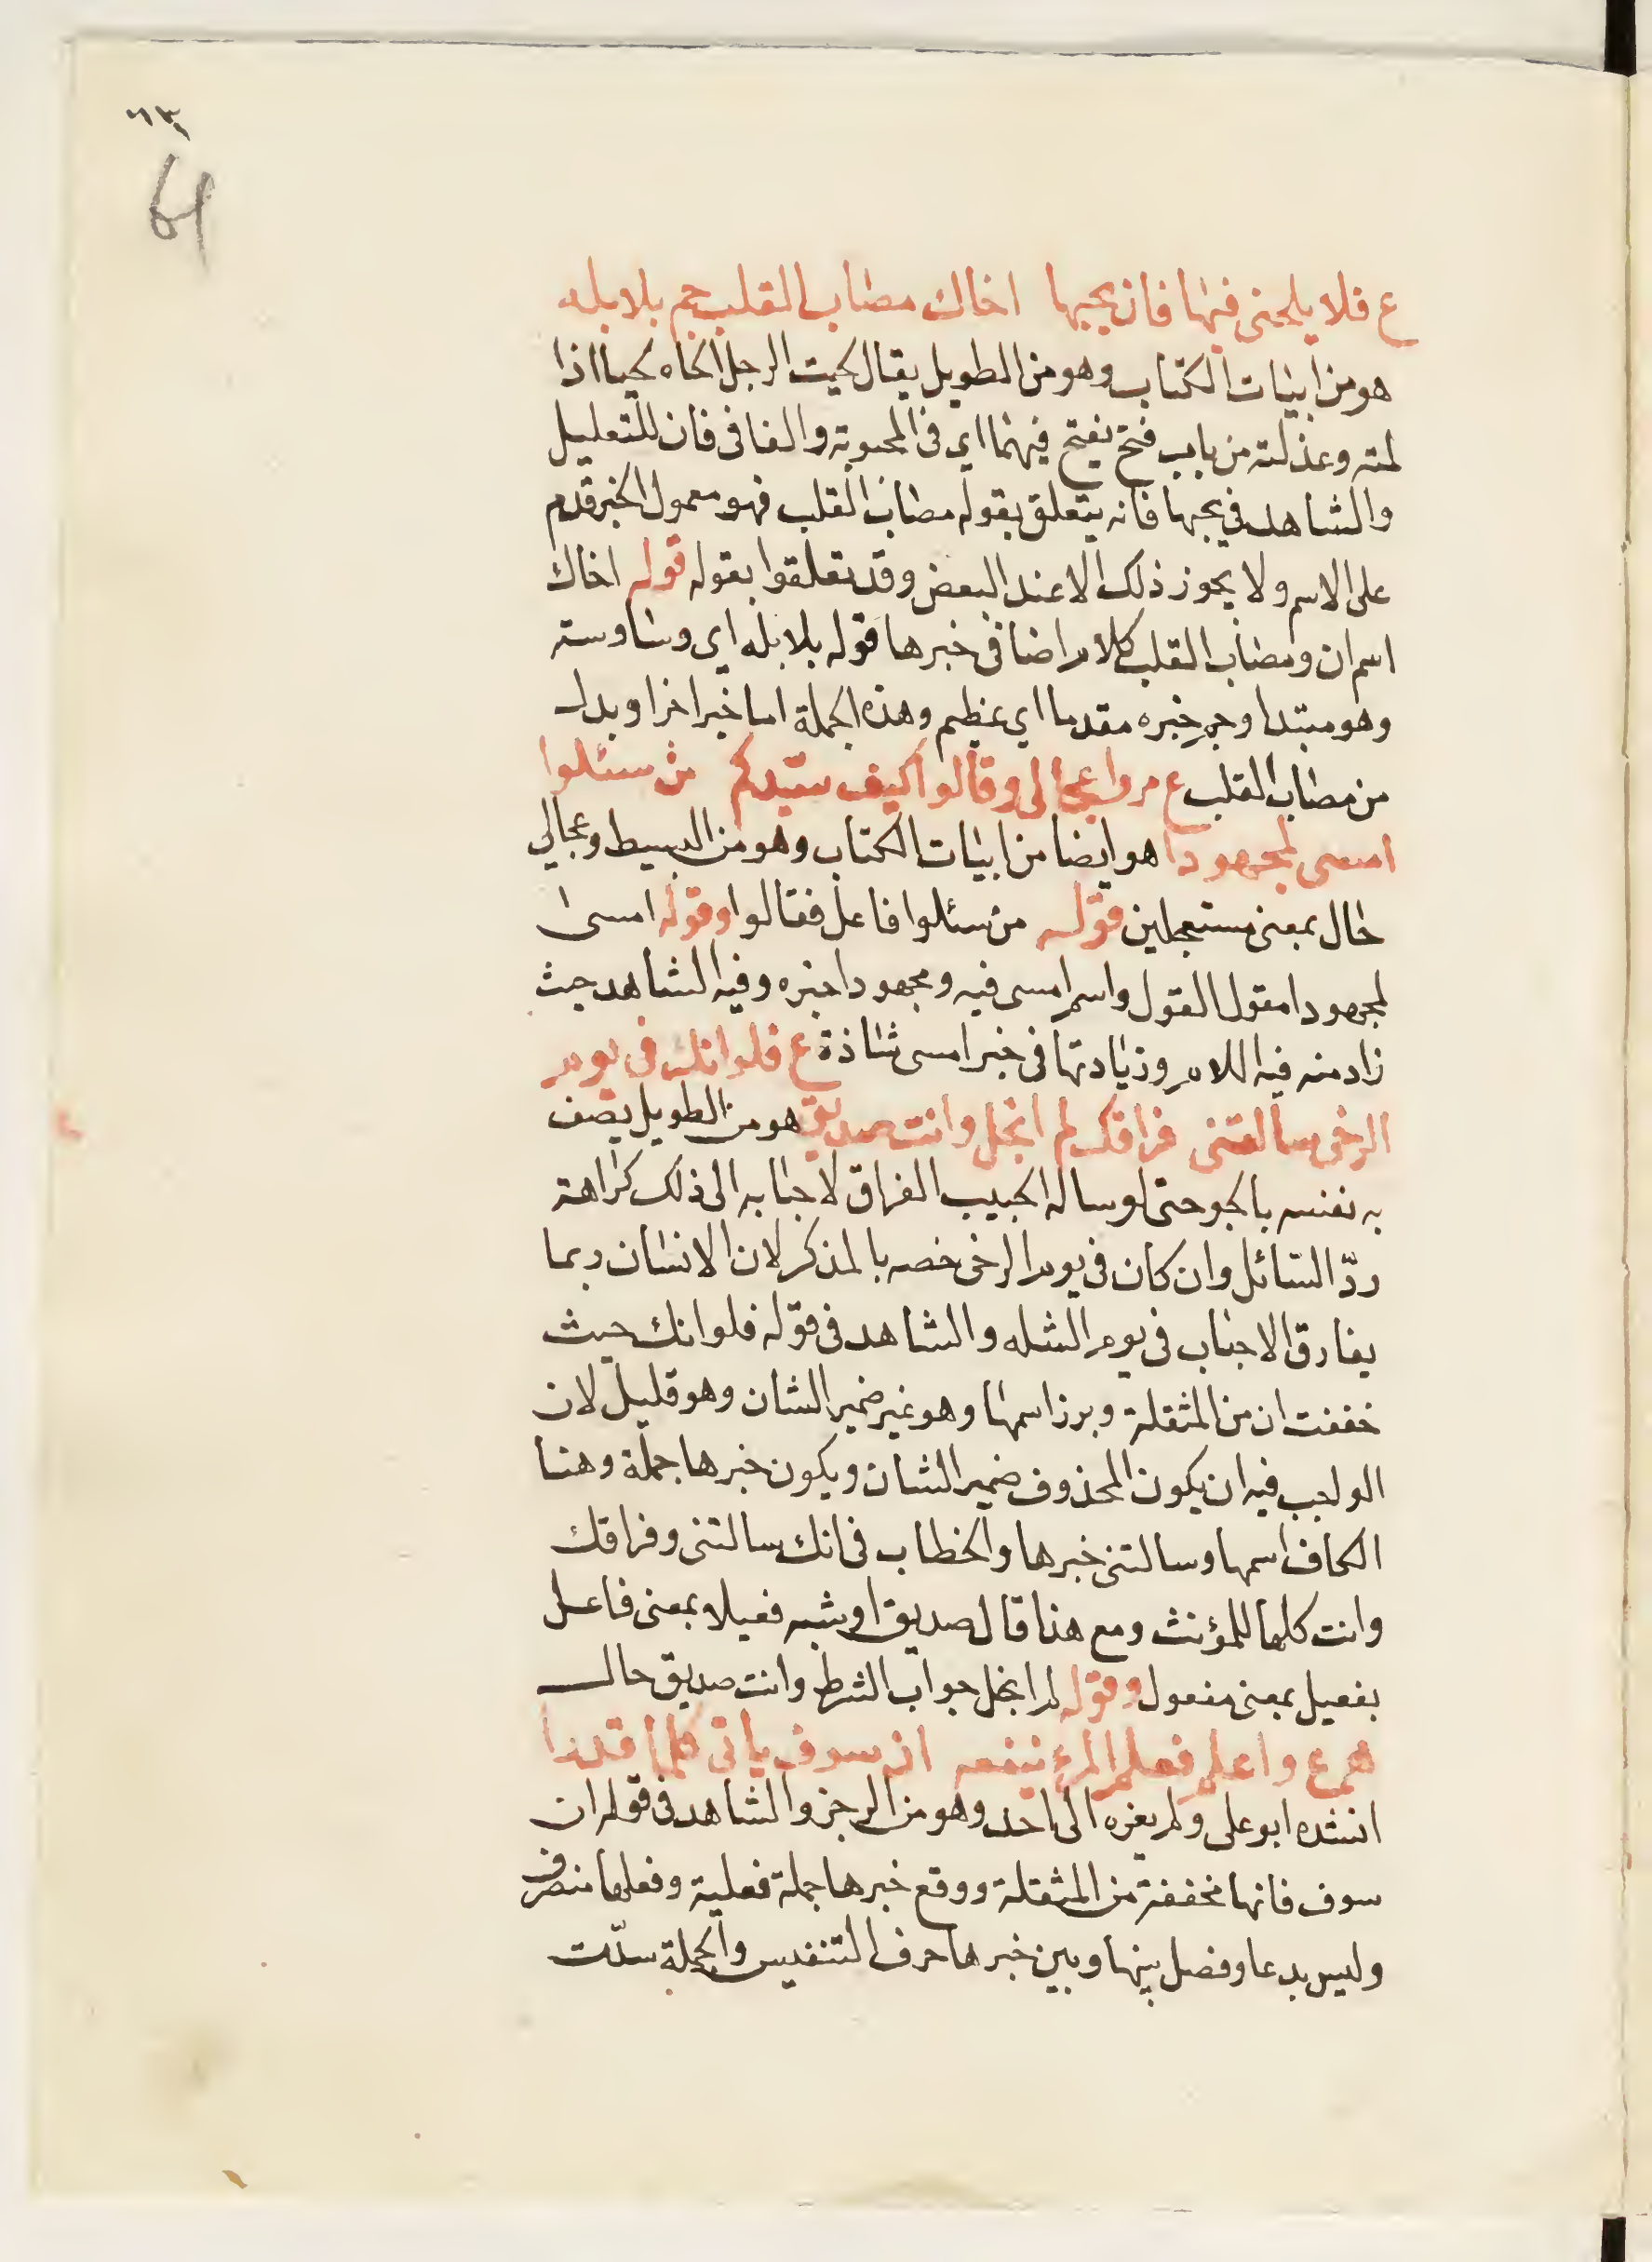 ٦٣
61
ع فلا يلحنى فيها فان بحبها اخاك مصاب القلب جم بلابله
هو من ابيات الكتاب وهو من الطويل يقال لحيت الرجل الحاه لحيا اذا
لمته وعذلته من باب فتح يفتح فيهما اى فى المحبوبة والفا فى فان للتعليل
والشاهد فى بحبها فانه يتعلق بقوله مصاب القلب فهو معمول الخبر قدم
على الاسم ولا يجوز ذلك الا عند البعض وقد تعلقوا بقوله قوله اخاك
اسم ان ومصاب القلب كلام اضافى خبرها قوله بلابله اى وساوسته
وهو مبتدا وجم خبره مقدما اى عظيم وهذه الجملة اما خبر اخر او بدل
من مصاب القلب ع مروا عجالى وقالوا كيف سيّدكم من سئلوا
امسى لمجهودا هو ايضا من ابيات الكتاب وهو من البسيط وعجالى
حال بمعنى مستعجلين قوله من سئلوا فاعل فقالوا وقوله امسى
لمجهودا مقول القول واسم امسى فيه ومجهودا خبره وفيه الشاهد حيث
زاد منه فيه اللام وزيادتها فى خبر امسى شاذة ع فلو انك فى يوم
الرخى سالتنى فراقك لم ابخل وانت صديق هو من الطويل يصف
به نفسه بالجو حتى لو ساله الحبيب الفراق لاجابه الى ذلك كراهة
ردّ السائل وان كان فى يوم الرخى خصه بالمذكر لان الانسان ربما
يفارق الاحباب فى يوم الشده والشاهد فى قوله فلو انك حيث
خففت ان من المثقلة وبرز اسمها وهو غير ضمير الشان وهو قليل لان
الواجب فيه ان يكون المحذوف ضمير الشان ويكون خبرها جملة وهنا
الكاف اسمها وسالتنى خبرها والخطاب فى انك سالتنى وفراقك
وانت كلها للمؤنث ومع هذا قال صديق او شبه فعيلا بمعنى فاعل
بفعيل بمعنى مفعول وقوله لم ابخل جواب الشرط وانت صديق حال
ع واعلم فعلم المرء ينفعه ان سوف ياتى كلما قدرا
انشده ابو على ولم يعزه الى احد وهو من الرجز والشاهد فى قوله ان
سوف فانها مخففة من المثقلة ووقع خبرها جملة فعلية وفعلها منصرف
وليس بدعا وفصل بينها وبين خبرها حرف التنفيس والجملة سدّت